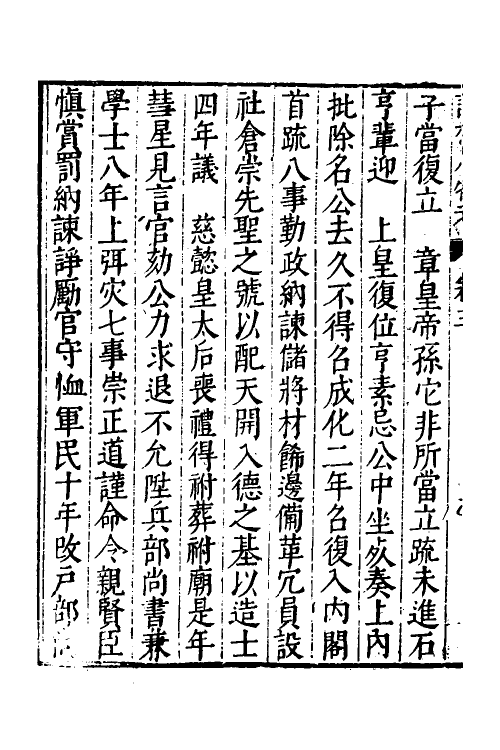 子當復立　章皇帝孫它非所當立疏未進石
亨輩迎　上皇復位亨素忌公中坐以奏上內
批除名公去久不得召成化二年召復入內閣
首疏八事勤政納諫儲將材飾邊備革冗員設
社倉崇先聖之號以配天開入德之基以造士
四年議　慈懿皇太后喪禮得祔葬祔廟是年
彗星見言官劾公力求退不允陞兵部尚書兼
學士八年上弭灾七事崇正道謹命令親賢臣
慎賞罰納諫諍勵官守恤軍民十年改戶部